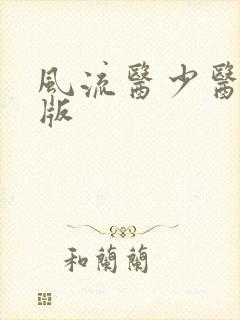 風流醫少醫
版
和蘭蘭